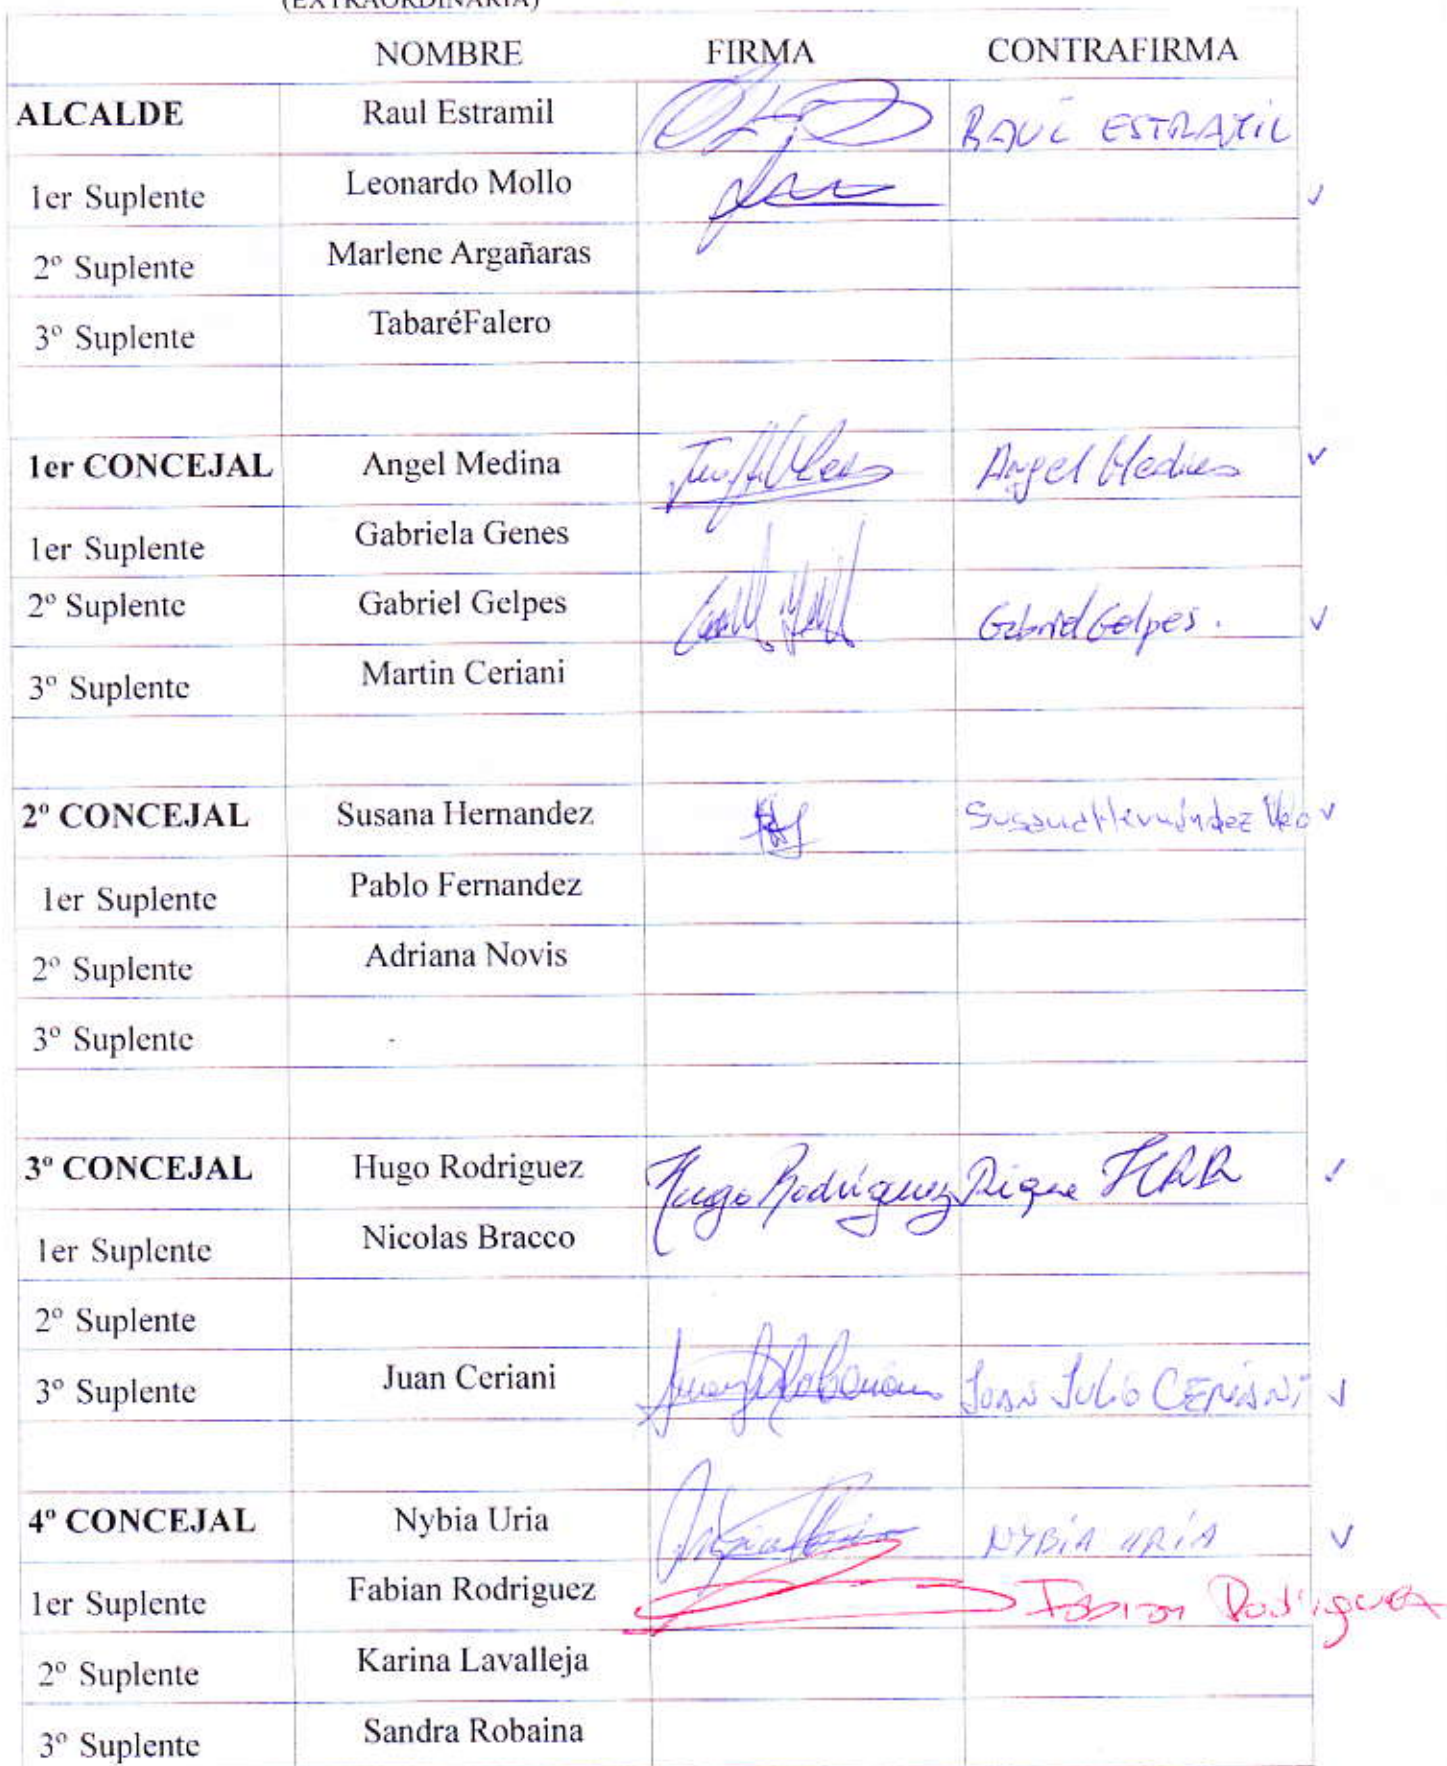 (EXTRAORDINARIA)
NOMBRE FIRMA CONTRAFIRMA
ALCALDE Raul Estramil RAUL ESTRAMIL
1er Suplente Leonardo Mollo
2º Suplente Marlene Argañaras
3º Suplente TabaréFalero
1er CONCEJAL Angel Medina Angel Medina
1er Suplente Gabriela Genes
2º Suplente Gabriel Gelpes Gabriel Gelpes.
3º Suplente Martin Ceriani
2º CONCEJAL Susana Hernandez Susana Hernández
1er Suplente Pablo Fernandez
2º Suplente Adriana Novis
3º Suplente -
3º CONCEJAL Hugo Rodriguez Hugo Rodríguez
1er Suplente Nicolas Bracco
2º Suplente
3º Suplente Juan Ceriani JUAN JULIO CERIANI
4º CONCEJAL Nybia Uria NYBIA URÍA
1er Suplente Fabian Rodriguez Fabian Rodriguez
2º Suplente Karina Lavalleja
3º Suplente Sandra Robaina